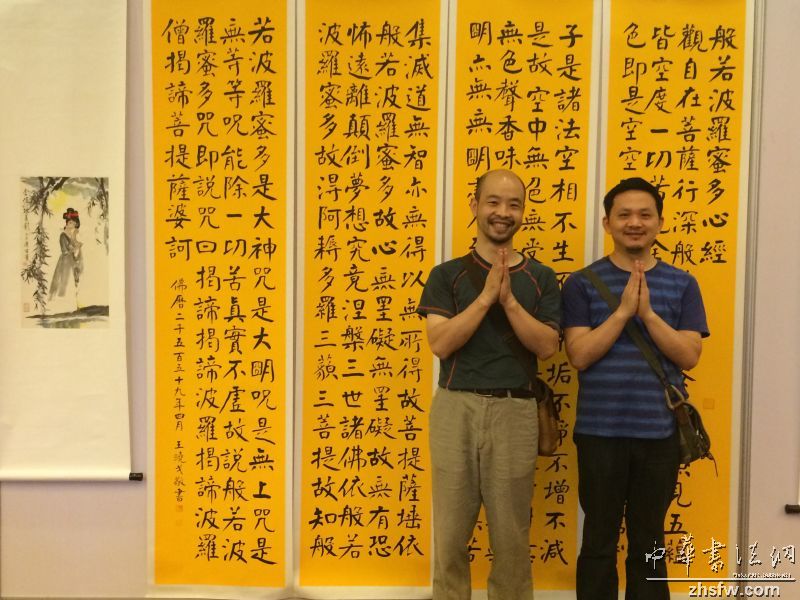 般若波羅蜜多心經
觀自在菩薩行深般 見五
皆空度一切苦厄舍
色即是空空
子是諸法空相不生不 垢不淨不增不減
是故空中無色無受
無色聲香味
明亦無無明
集滅道無智亦無得以無所得故菩提薩埵依
般若波羅蜜多故心無罣礙無罣礙故無有恐
怖遠離顛倒夢想究竟涅槃三世諸佛依般若
波羅蜜多故得阿耨多羅三藐三菩提故知般
若波羅蜜多是大神咒是大明咒是無上咒是
無等等呪能除一切苦真實不虛故說般若波
羅蜜多咒即說咒曰揭諦揭諦波羅揭諦波羅
僧揭諦菩提薩婆訶
佛曆二千五百五十九年四月 王曉戈敬書
中華書法網
zhsfw.com